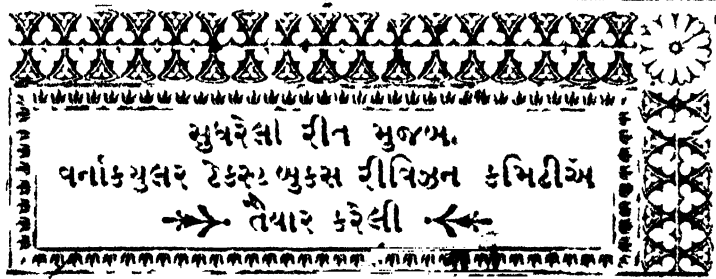 સુધરેલી રીત મુજબ.
વર્નાક્યુલર ટેક્સ્ટ બુક્સ રીવિઝન કમિટીએ
તૈયાર કરેલી